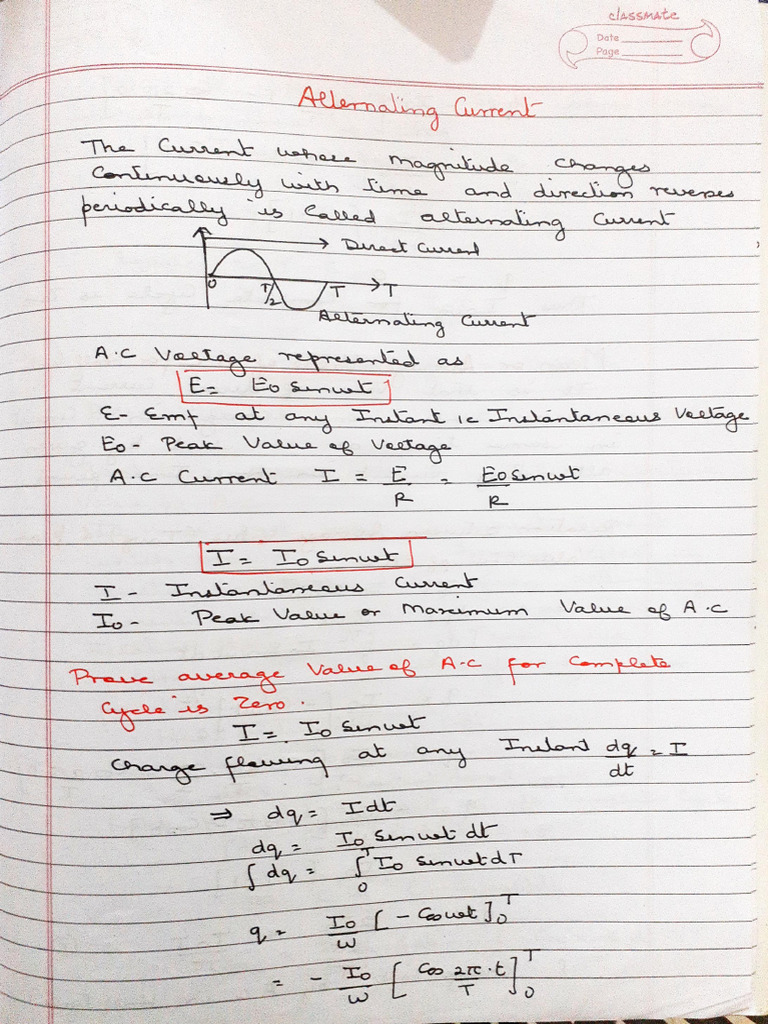 classmate
Date
Page
Alternating Current
The Current whose magnitude changes
Continuously with time and direction reverses
periodically is Called alternating Current
Direct Current
O T/2 T T
Alternating Current
A.C Voltage represented as
E = E₀ sinωt
E - Emf at any Instant ie Instantaneous Voltage
E₀ - Peak Value of Voltage
A.C Current I = E/R = E₀ sinωt/R
I = I₀ sinωt
I - Instantaneous Current
I₀ - Peak Value or Maximum Value of A.C
Prove average Value of A.C for Complete
Cycle is Zero.
I = I₀ sinωt
Charge flowing at any Instant dq/dt = I
⇒ dq = Idt
dq = I₀ sinωt dt
∫dq = ∫₀ᵀ I₀ sinωt dT
q = I₀/ω [- Cosωt]₀ᵀ
= - I₀/ω [Cos 2π/T · t]₀ᵀ